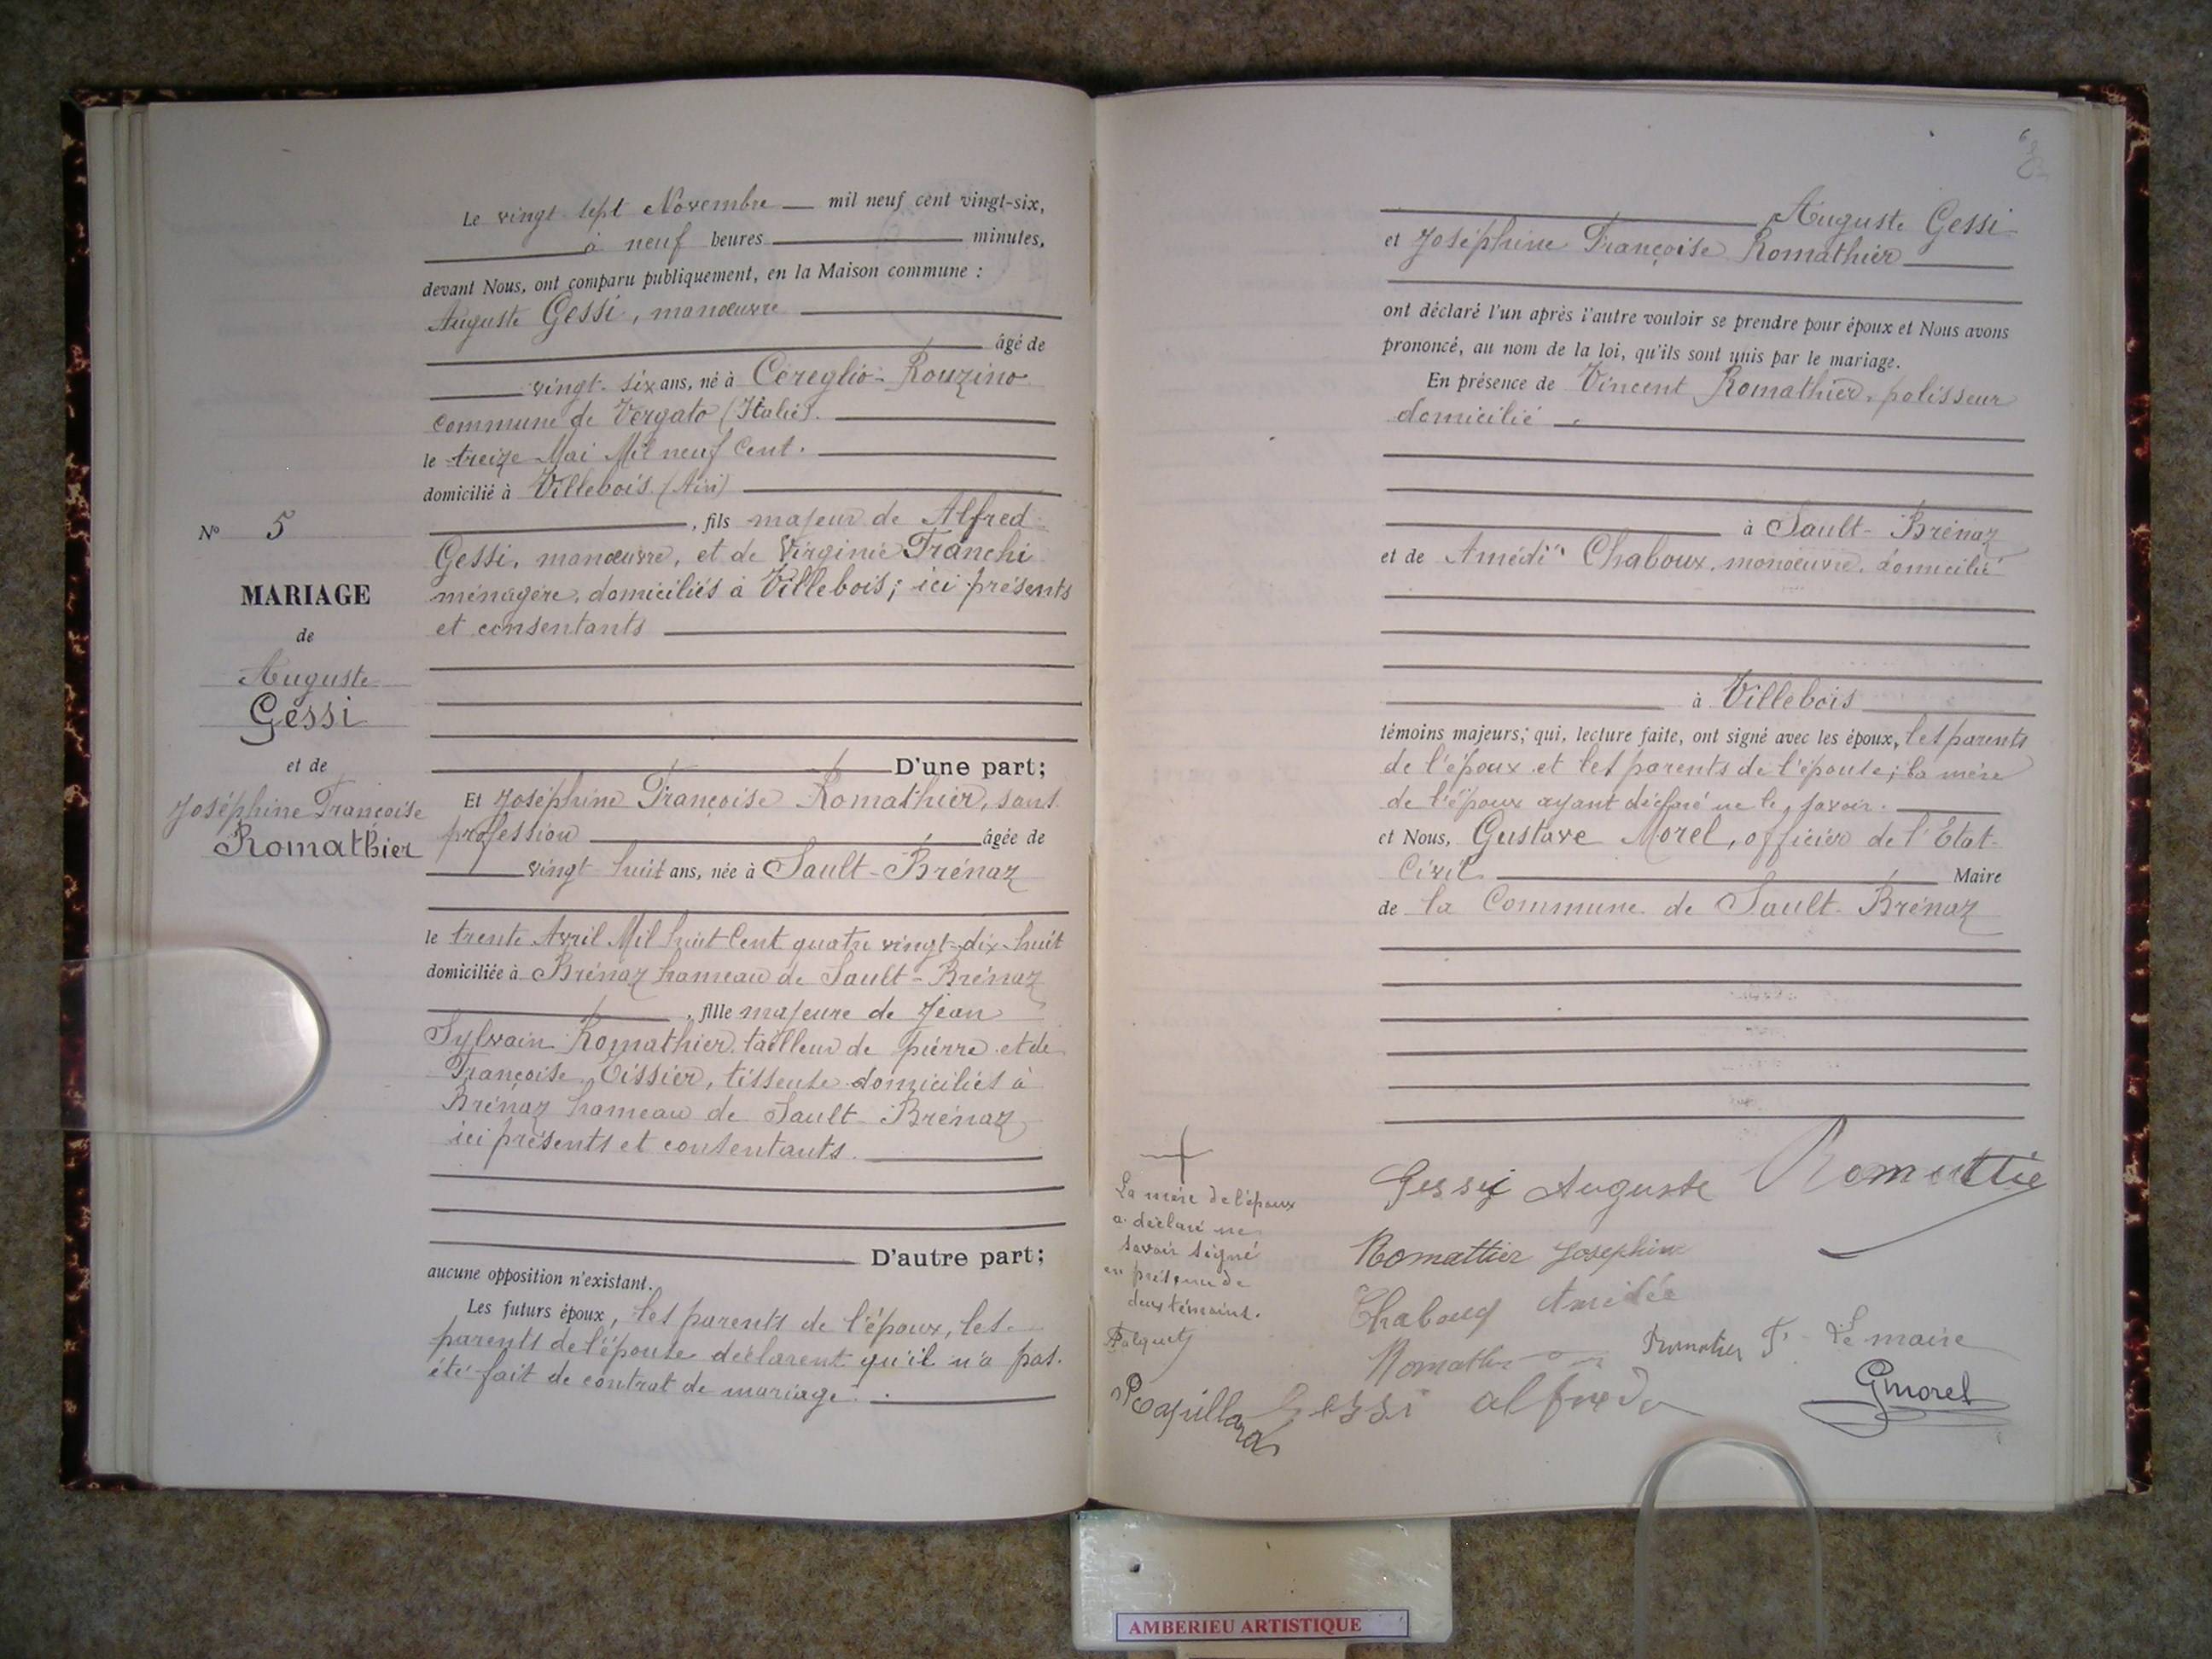 Le vingt sept Novembre mil neuf cent vingt-six,
à neuf heures minutes,
devant Nous, ont comparu publiquement, en la Maison commune :
Auguste Gessi, manœuvre
âgé de
vingt-six ans, né à Céreglio-Rouzino
commune de Vergato (Italie).
le treize Mai Mil neuf Cent.
domicilié à Villebois (Ain)
, fils majeur de Alfred
Gessi, manœuvre, et de Virginie Franchi
ménagère, domiciliés à Villebois; ici présents
et consentants
D'une part;
Et Joséphine Françoise Romathier, sans
profession âgée de
vingt huit ans, née à Sault-Brénaz
le trente Avril Mil huit Cent quatre vingt-dix-huit
domiciliée à Brénaz hameau de Sault-Brénaz
, fille majeure de Jean
Sylvain Romathier, tailleur de pierre et de
Françoise Tissier, tisseuse domiciliés à
Brénaz hameau de Sault-Brénaz
ici présents et consentants.
D'autre part;
aucune opposition n'existant.
Les futurs époux, les parents de l'époux, les
parents de l'épouse déclarent qu'il n'a pas
été fait de contrat de mariage.
N° 5
MARIAGE
de
Auguste
Gessi
et de
Joséphine Françoise
Romathier
Auguste Gessi
et Joséphine Françoise Romathier
ont déclaré l'un après l'autre vouloir se prendre pour époux et Nous avons
prononcé, au nom de la loi, qu'ils sont unis par le mariage.
En présence de Vincent Romathier, polisseur
domicilié
à Sault-Brénaz
et de Amédé Chaboux, manœuvre, domicilié
à Villebois
témoins majeurs, qui, lecture faite, ont signé avec les époux, les parents
de l'époux et les parents de l'épouse; la mère
de l'époux ayant déclaré ne le savoir.
et Nous, Gustave Morel, officier de l'Etat-
Civil Maire
de la Commune de Sault-Brénaz
La mère de l'époux
a déclaré ne
savoir signé
en présence de
deux témoins.
Gessi Auguste
Romattier Josephine
Amédée
Le maire
GMorel
Gessi alfredo
AMBERIEU ARTISTIQUE